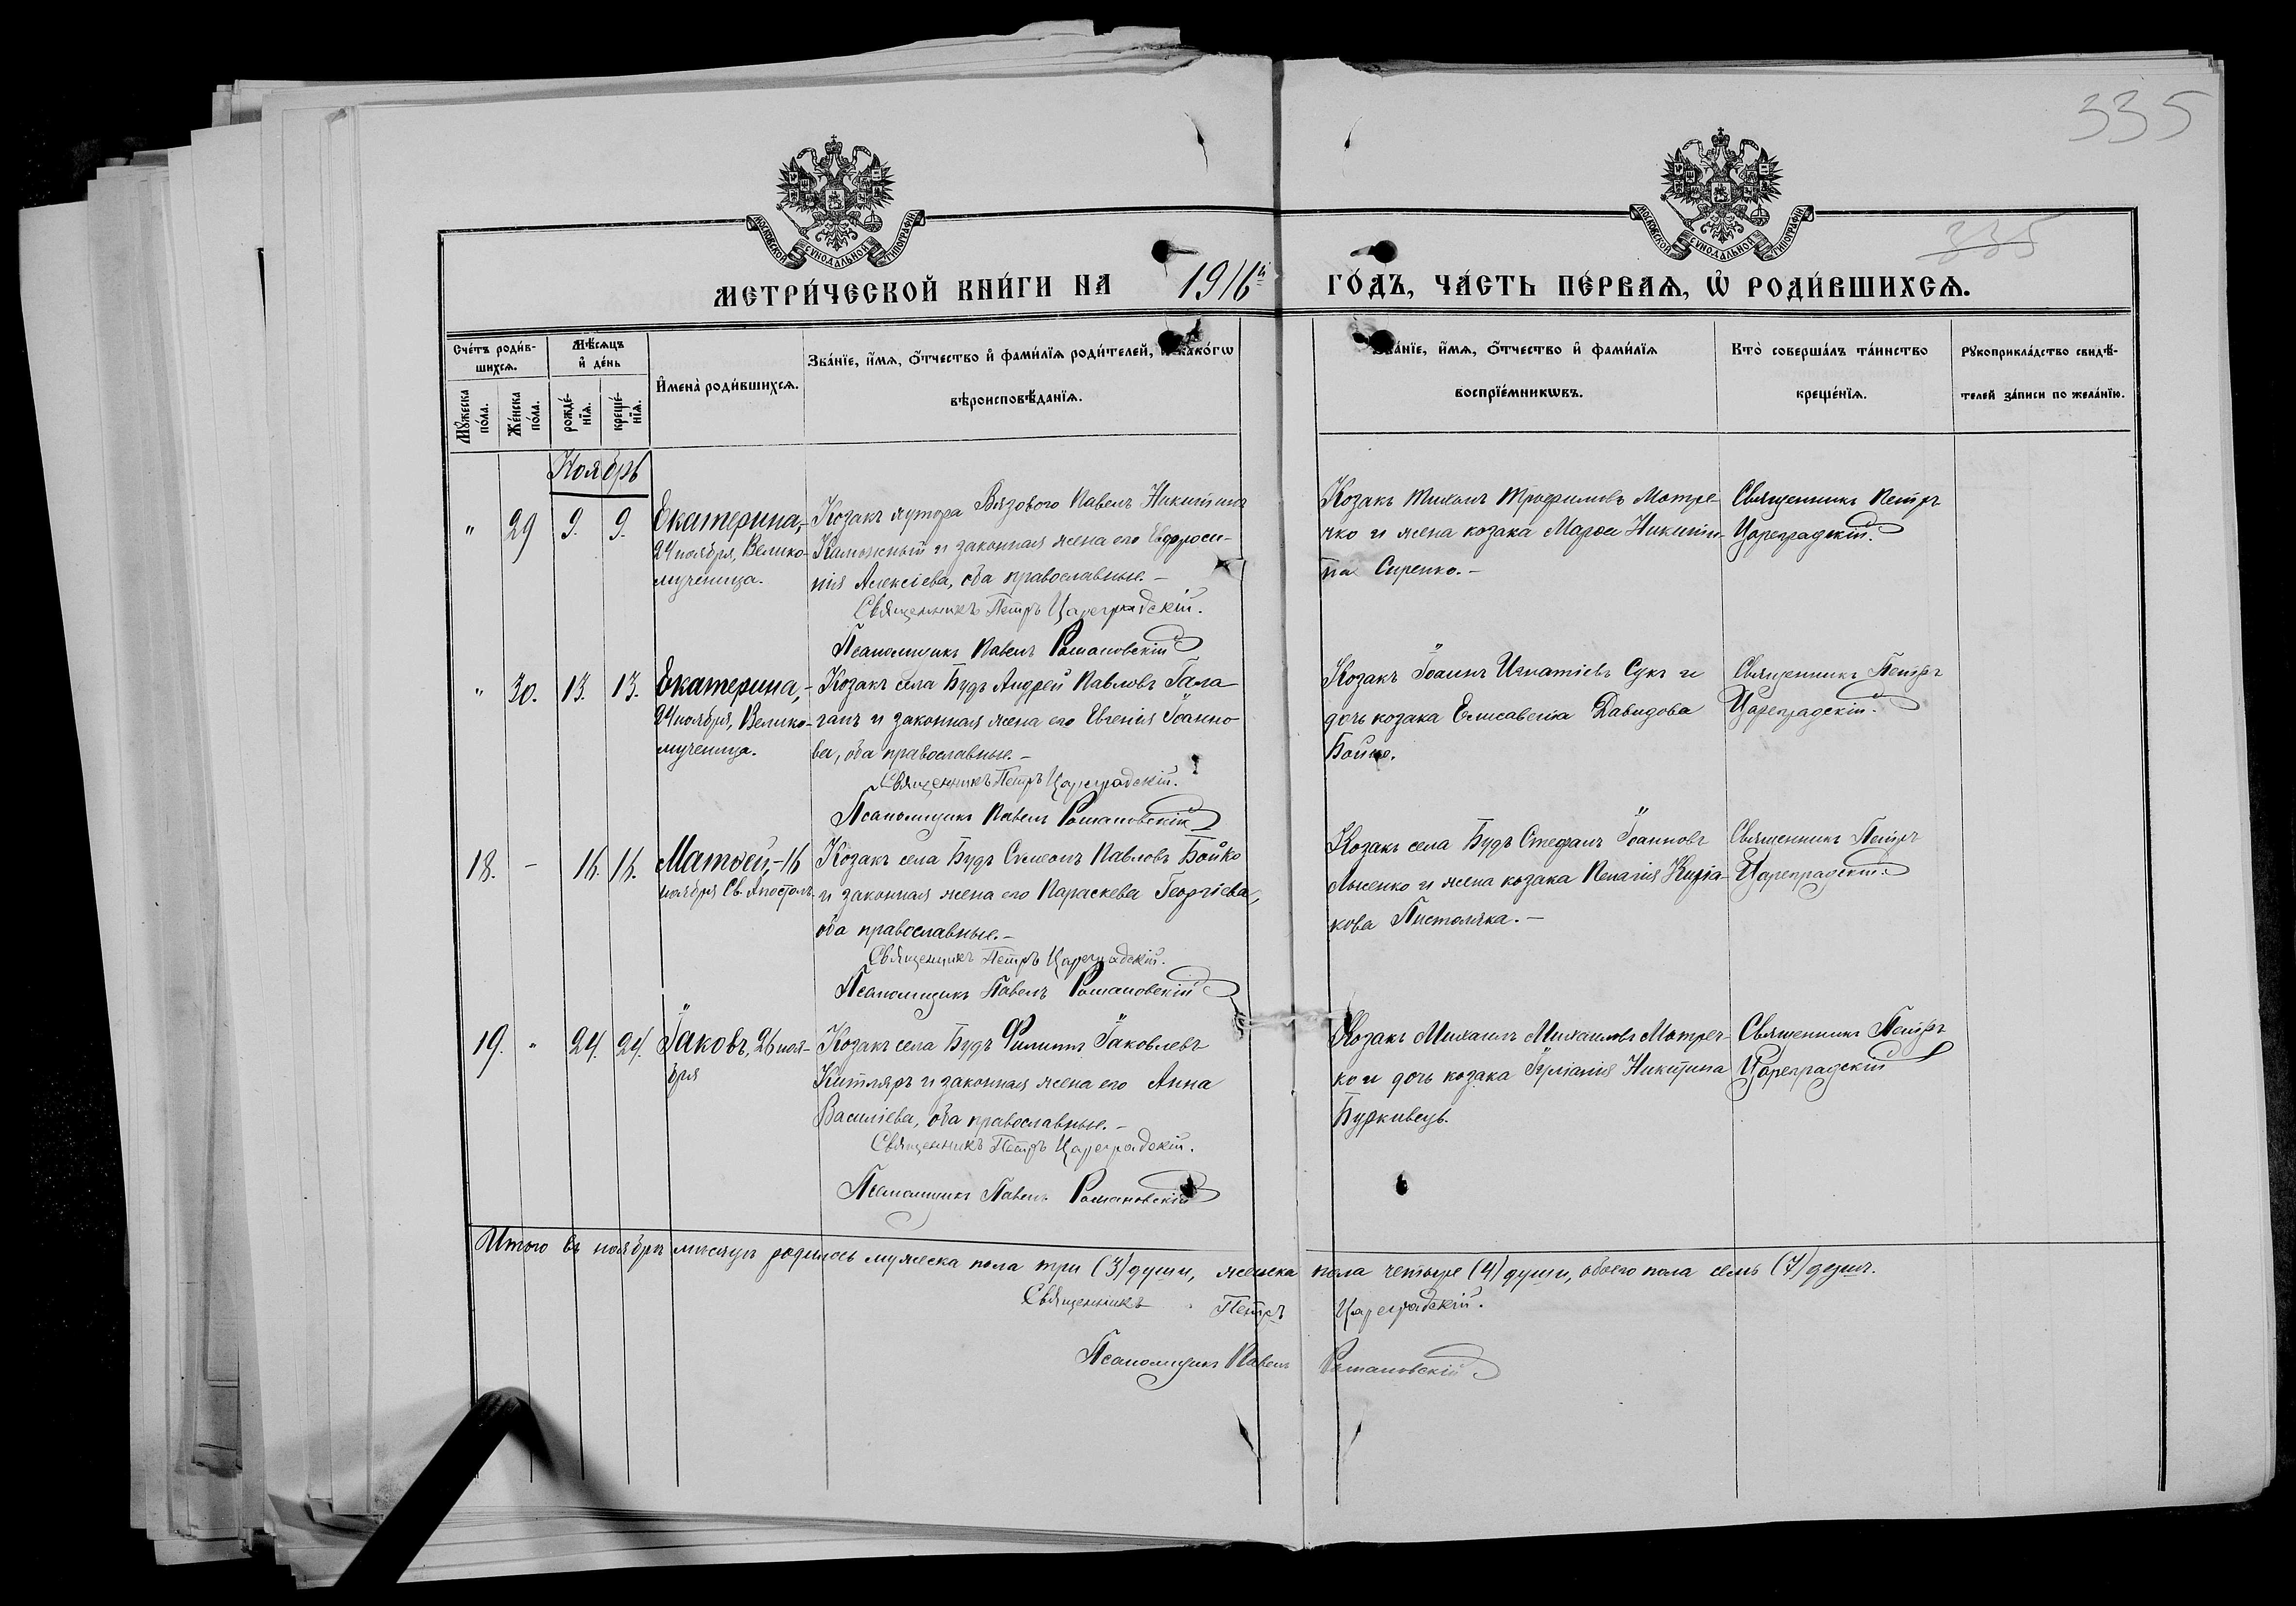 335
335
МОСКОВСКОЙ СѴНОДАЛЬНОЙ ТИПОГРАФІИ
МОСКОВСКОЙ СѴНОДАЛЬНОЙ ТИПОГРАФІИ
МЕТРИ́ЧЕСКОЙ КНИ́ГИ НА 1916й ГО́ДЪ, ЧА́СТЬ ПЕ́РВАѦ, Ѡ҆ РОДИ́ВШИХСѦ.
Сче́тъ роди́в-
шихсѧ.
Мꙋ́жеска по́ла.
Же́нска по́ла.
Мѣ́сяцъ
и҆ де́нь
рожде́-
нїѧ.
креще́-
нїѧ.
И҆мена̀ роди́вшихсѧ.
Зва́нїе, и҆́мѧ, ѻ҆́тчество и҆ фами́лїѧ роди́телей, и҆ како́гѡ
вѣроисповѣ́данїѧ.
Зва́нїе, и҆́мѧ, ѻ҆́тчество и҆ фами́лїѧ
воспрїе́мникѡвъ.
Кто̀ соверша́лъ та́инство
креще́нїѧ.
Рꙋкоприкла́дство свидѣ́-
телей за́писи по жела́нїю.
Ноябрь
" 29 9. 9.
Екатерина,-
24 ноября, Велико-
мученица.
Козакъ хутора Вязового Павелъ Никитинъ
и законная жена его Евфроси-
нія Алексіева, оба православные.-
Священникъ Петръ Цареградскій.
Псаломщикъ Павелъ Романовскій
Козакъ Тихонъ Трофимовъ Мотре-
чко и жена козака Марѳа Никити-
на Сиренко.-
Священникъ Петръ
Цареградскій.
" 30. 13. 13.
Екатерина,-
24 ноября, Велико-
мученица.
Козакъ села Будъ Андрей Павловъ Гала-
ганъ и законная жена его Евгенія Іоанно-
ва, оба православные.-
Священникъ Петръ Цареградскій.
Псаломщикъ Павелъ Романовскій
Козакъ Іоаннъ Игнатіевъ Сукъ и
дочь козака Елисавета Давидова
Бойко.
Священникъ Петръ
Цареградскій.
18. - 16. 16.
Матѳей,-16
ноября Св. Апостолъ.
Козакъ села Будъ Симеонъ Павловъ Бойко
и законная жена его Параскева Георгіева,
оба православные.-
Священникъ Петръ Цареградскій.
Псаломщикъ Павелъ Романовскій
Козакъ села Будъ Стефанъ Іоанновъ
и жена козака Пелагія Киріа-
кова Пистоляка.-
Священникъ Петръ
Цареградскій.
19. " 24. 24.
Іаковъ, 26 ноя-
бря
Козакъ села Будъ Филиппъ Іаковлевъ
Китляръ и законная жена его Анна
Василіева, оба православные.-
Священникъ Петръ Цареградскій.
Псаломщикъ Павелъ Романовскій
Козакъ Михаилъ Михаиловъ Мотреч-
ко и дочь козака Іуліанія Никитина
Буркивецъ.
Священникъ Петръ
Цареградскій
Итого въ ноябрѣ мѣсяцѣ родилось мужеска пола три (3) души, женска пола четыре (4) души, обоего пола семь (7) душъ.
Священникъ Петръ Цареградскій.
Псаломщикъ Павелъ Романовскій